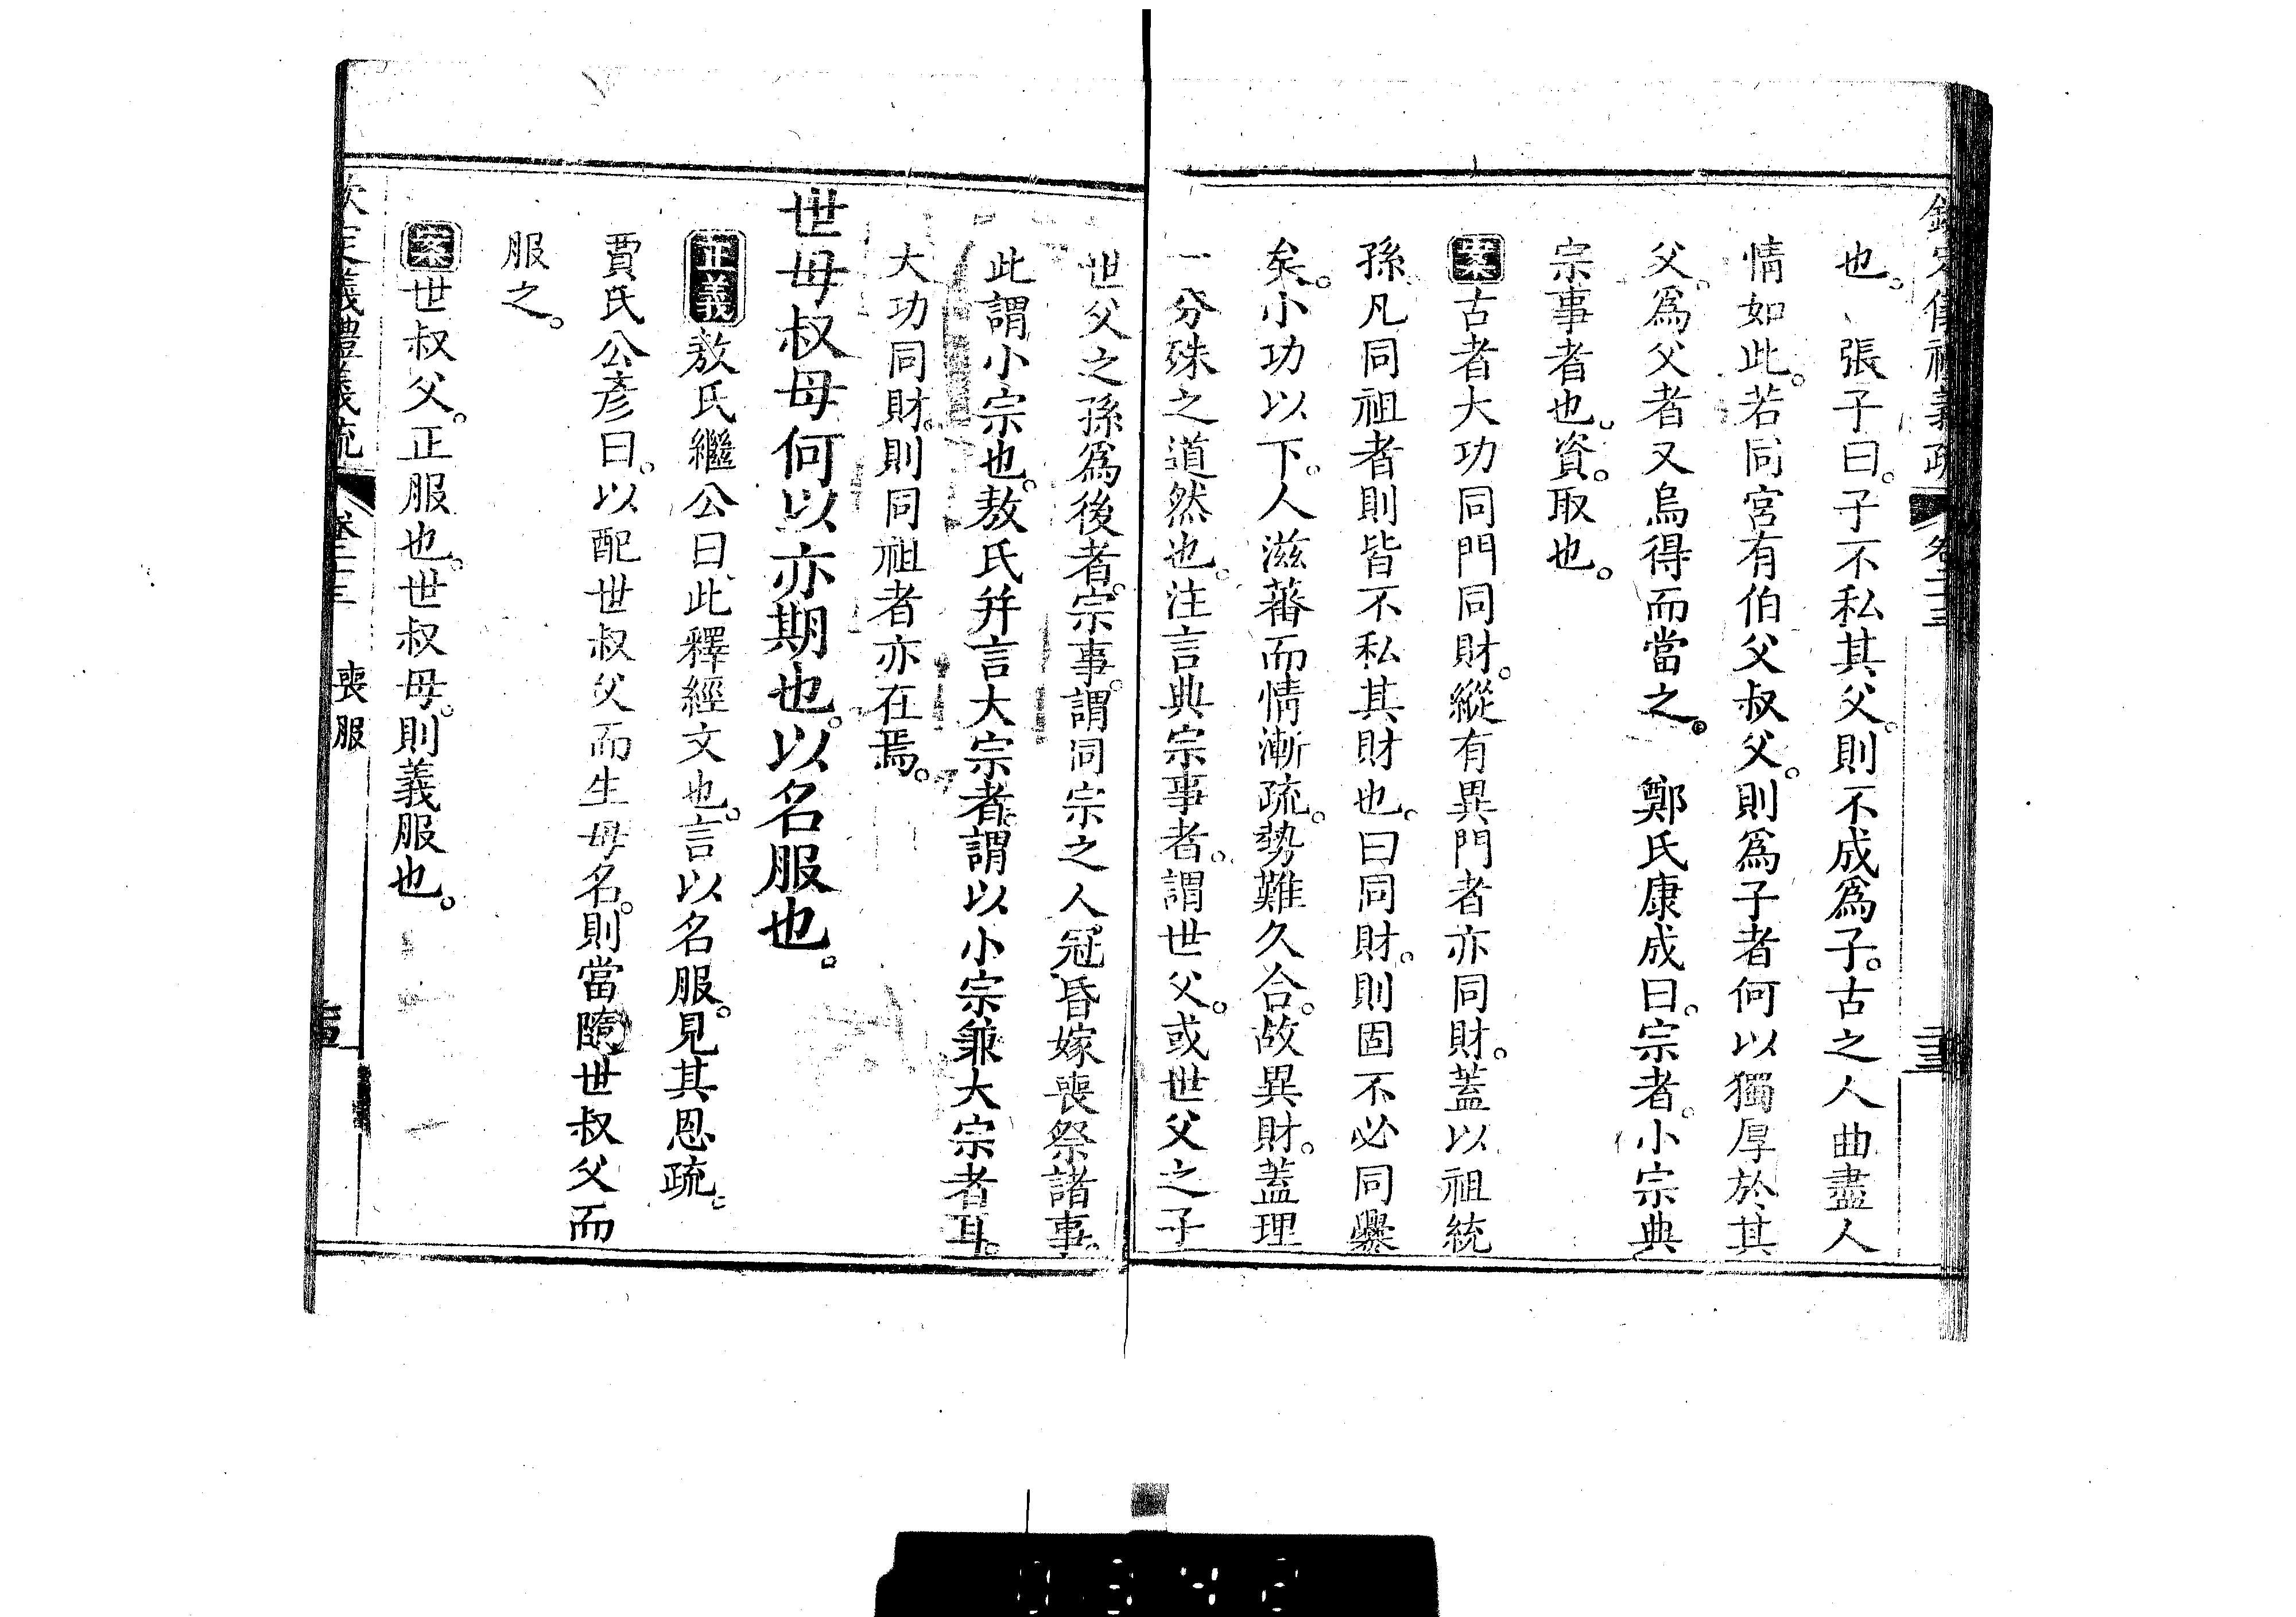 欽定儀禮義疏 卷二十三
也。張子曰。子不私其父。則不成爲子。古之人曲盡人
情如此。若同宮有伯父叔父。則爲子者何以獨厚於其
父。爲父者又烏得而當之。鄭氏康成曰。宗者。小宗典
宗事者也。資。取也。
案古者大功同門同財。縱有異門者亦同財。蓋以祖統
孫凡同祖者則皆不私其財也。曰同財。則固不必同爨
矣。小功以下。人滋蕃而情漸疏。勢難久合。故異財。蓋理
一分殊之道然也。注言典宗事者。謂世父。或世父之子
世父之孫爲後者。宗事。謂同宗之人冠昏嫁喪祭諸事。
此謂小宗也。敖氏幷言大宗者。謂以小宗兼大宗者耳。
大功同財。則同祖者亦在焉。
世母叔母何以亦期也。以名服也。
正義敖氏繼公曰此釋經文也。言以名服。見其恩疏。
賈氏公彥曰。以配世叔父而生母名。則當隨世叔父而
服之。
案世叔父。正服也。世叔母。則義服也。
欽定儀禮義疏 卷二十三 喪服
0342